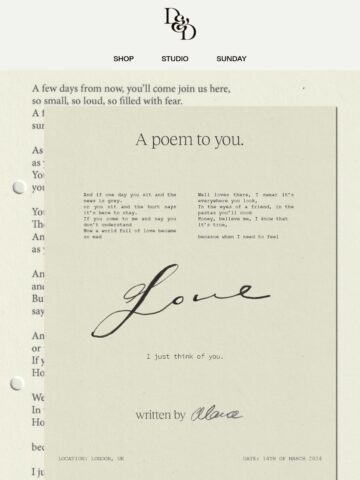 D&D
SHOP
STUDIO
SUNDAY
A few days from now, you'll come join us here,
so small, so loud, so filled with fear.
A poem to you.
And if one day you sit and the
news is grey.
or you sit and the hurt says
it's here to stay.
If you come to me and say you
don't understand
How a world full of love became
so mad
Well loves there, I swear it's
everywhere you look,
In the eyes of a friend, in the
pastas you'll cook
Money, believe me, I know that
it's true,
because when I need to feel
Love
I just think of you.
written by
LOCATION: LONDON, UK
DATE: 14TH OF MARCH 2024